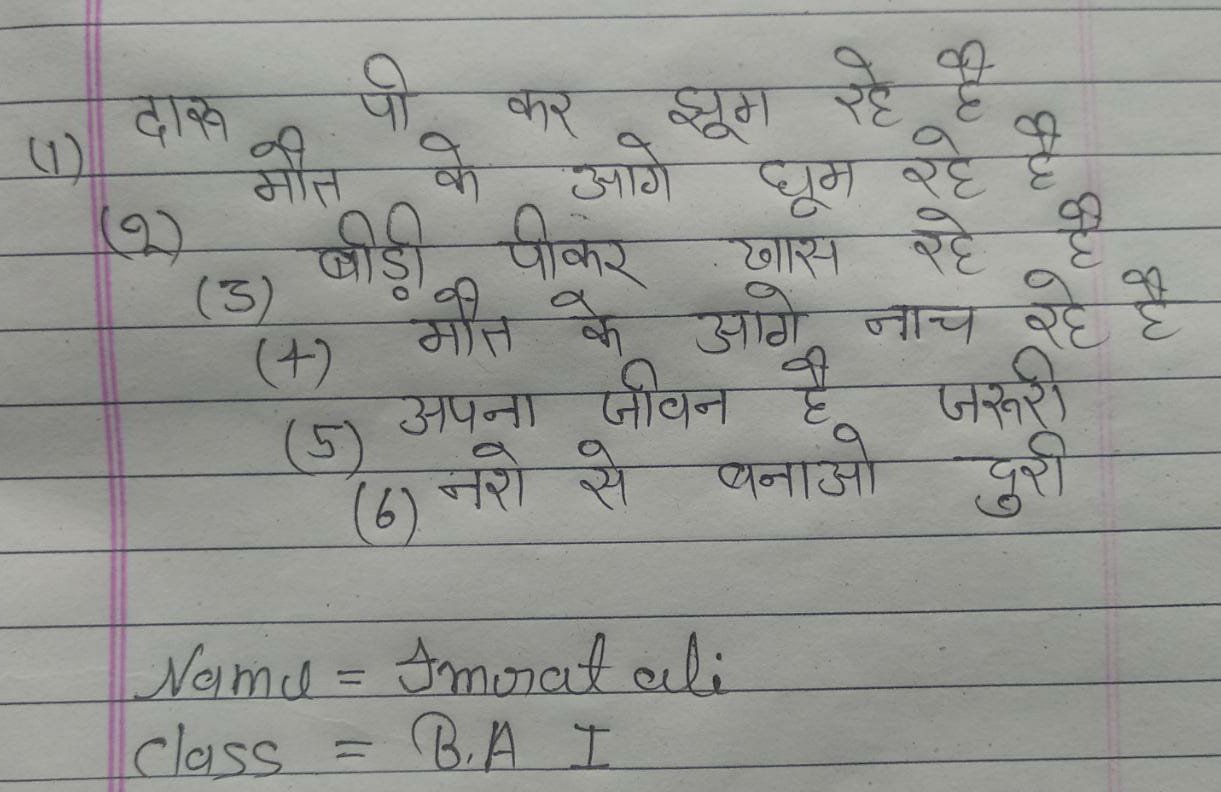 (1) दारू पी कर झूम रहे है
(2) मौत के आगे घूम रहे है
(3) बीड़ी पीकर खास रहे है
(4) मौत के आगे नाच रहे है
(5) अपना जीवन है जरूरी
(6) नशे से बनाओ दुरी
Name = Imorat ali
Class = B.A I